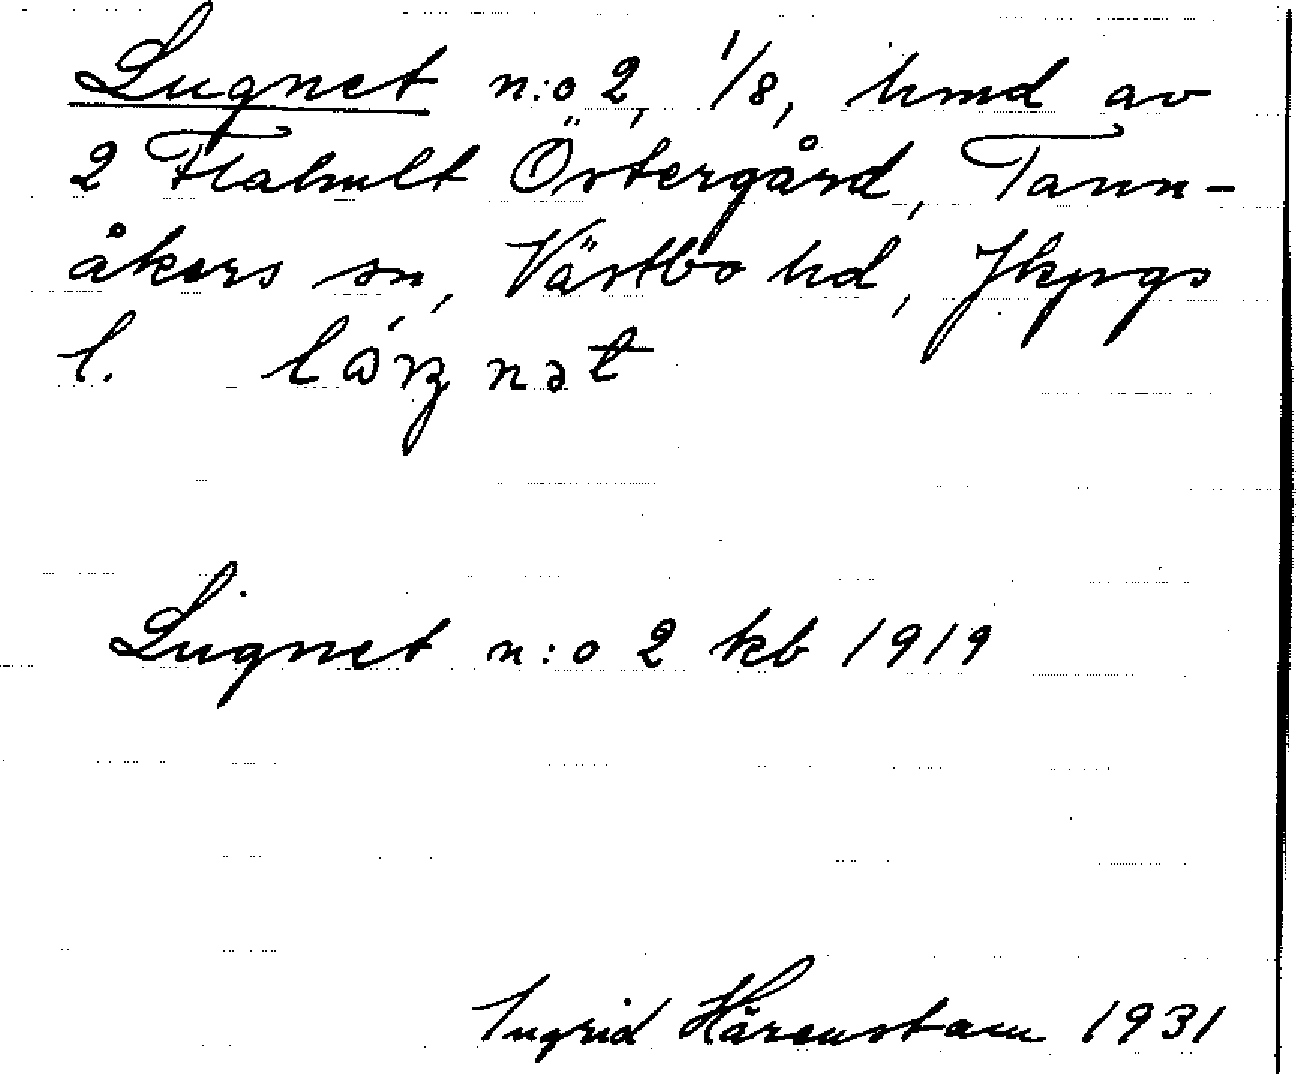 Lugnet n:o 2, 1/8, hmd av
2 Flahult Östergård, Tann-
åkers sn, Västbo hd, Jkpgs
l.
Lugnet n:o 2 kb 1919
Ingrid Härenstam 1931